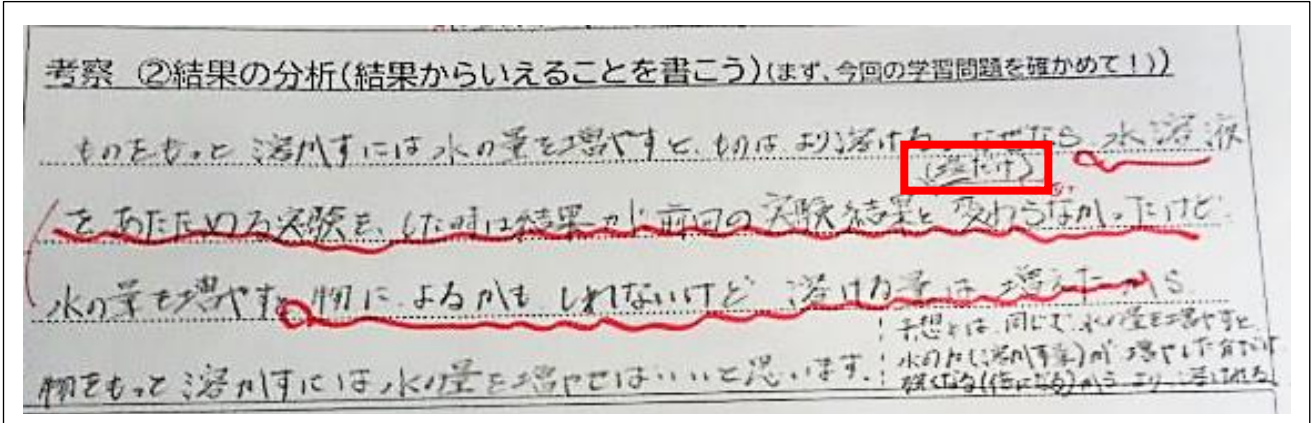 考察 ②結果の分析(結果からいえることを書こう)(まず、今回の学習問題を確かめて！))
ものをもっと溶かすには水の量を増やすと、ものはより溶ける。なぜなら水溶液
(塩だけ)
をあたためる実験を、した時は結果が前回の実験結果と変わらなかったけど
水の量を増やすと物によるかもしれないけど溶ける量は増えたから
物をもっと溶かすには水の量を増やせばいいと思います。
予想とは同じで水の量を増やすと
水の力(溶かす量)が増やした分だけ
強くなる(倍になる)からより溶けれる